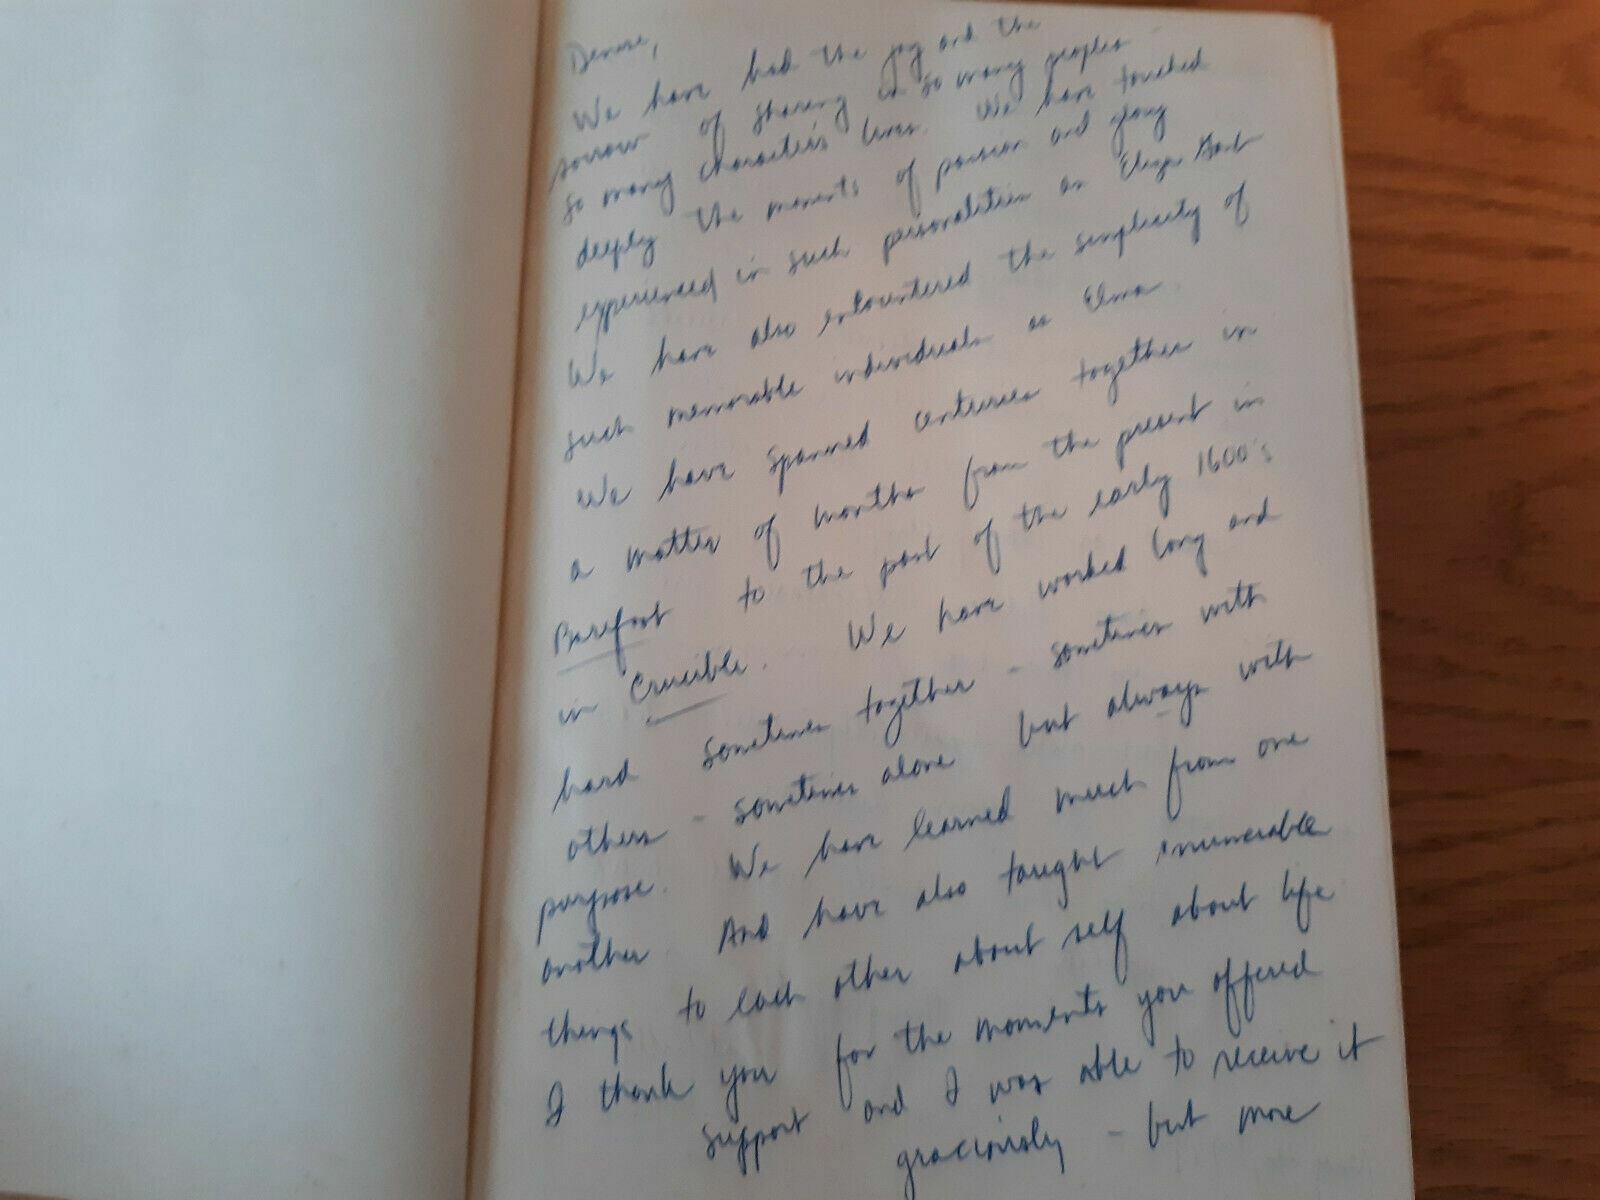 Denise,
We have had the joy and the
sorrow of sharing in so many peoples -
so many characters lives. We have touched
deeply the moments of passion and glory
experienced in such personalities as Eliza Gant
We have also encountered the simplicity of
such memorable individuals as Elma.
We have spanned centuries together in
a matter of months from the present in
Barefoot to the past of the early 1600's
in Crucible. We have worked long and
hard sometimes together - sometimes with
others - sometimes alone but always with
purpose. We have learned much from one
another. And have also taught innumerable
things to each other about self about life
I thank you for the moments you offered
support and I was able to receive it
graciously - but more